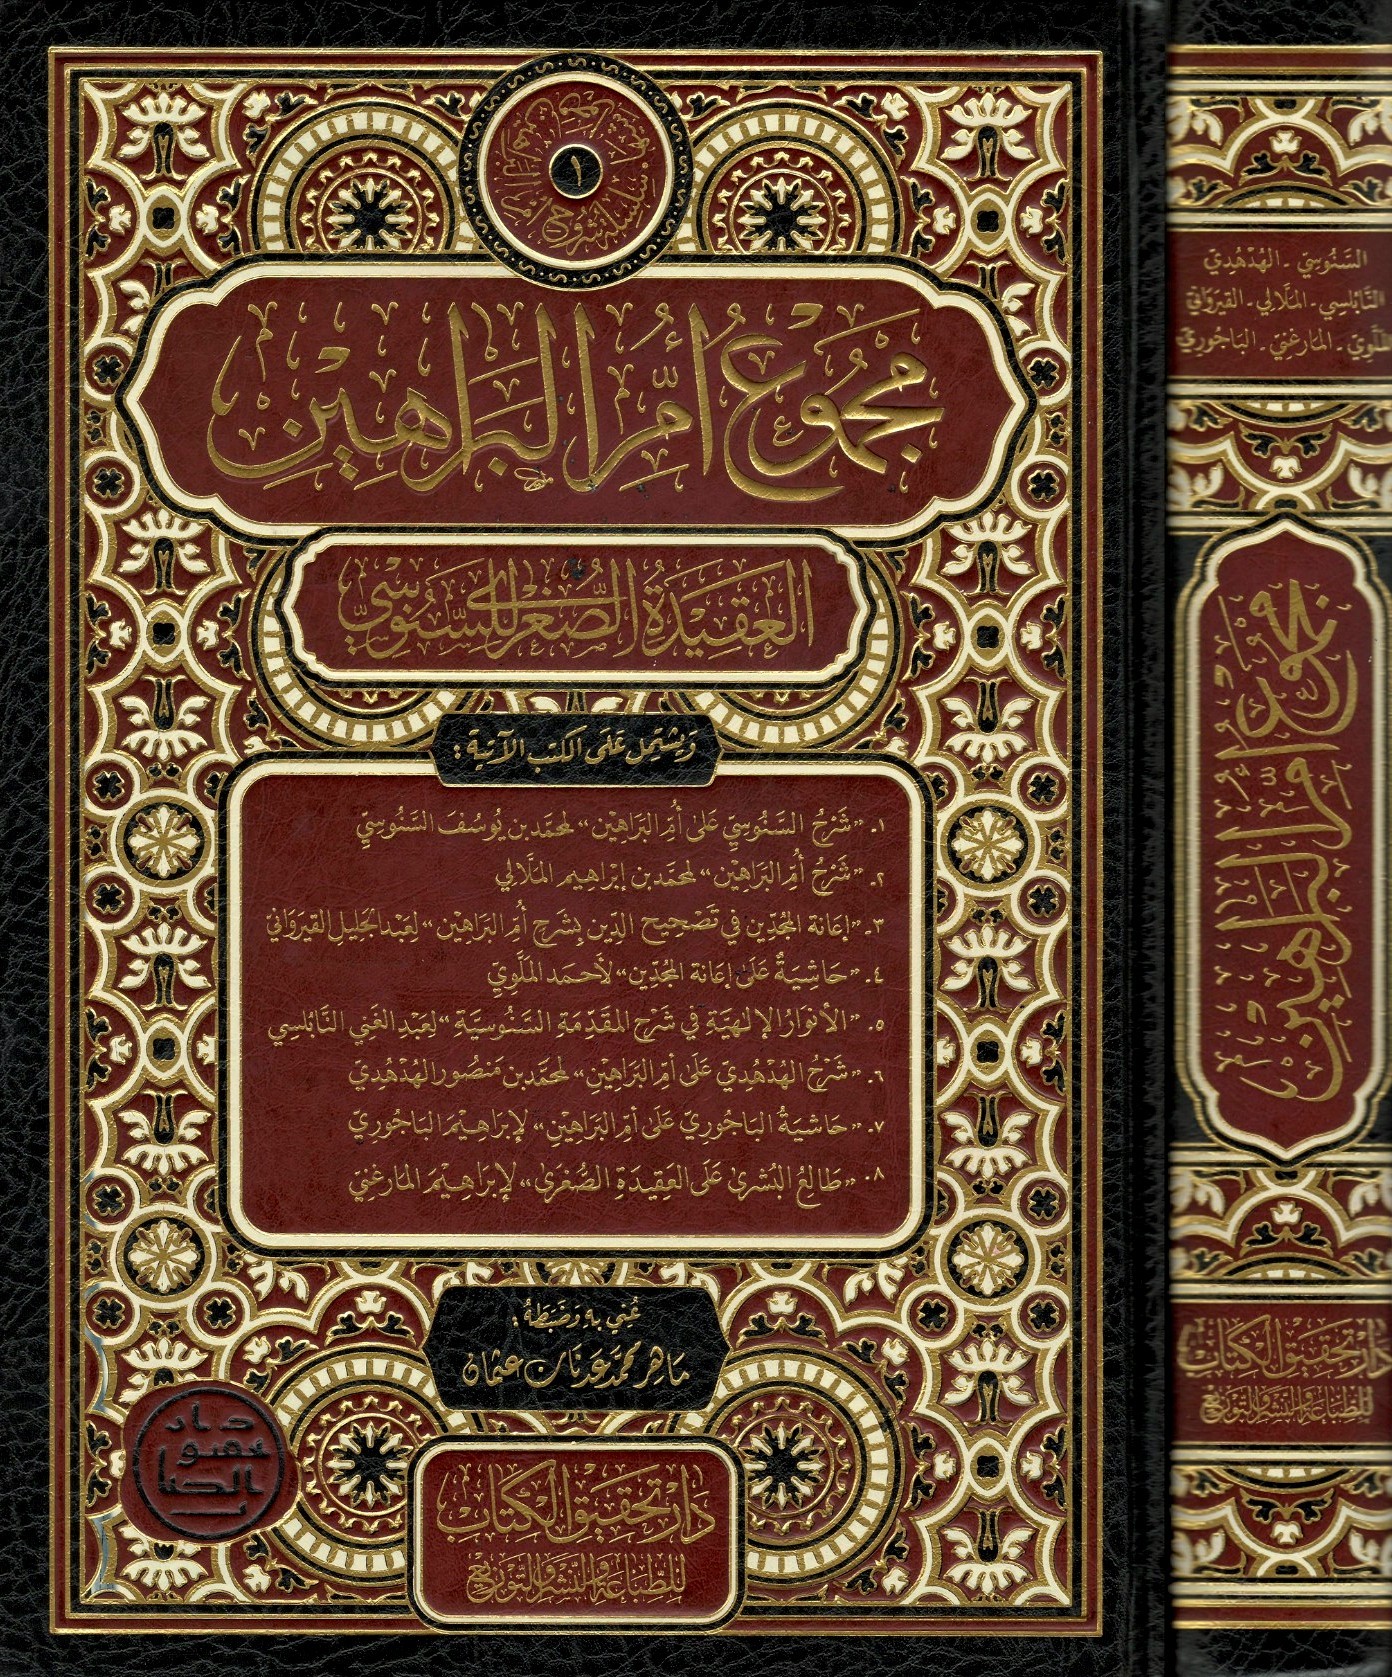 سلسلة شروح أم البراهين
١
مجموع أم البراهين
العقيدة الصغرى للسنوسي
ويشتمل على الكتب الآتية:
١. «شَرْحُ السَّنُوسِيِّ عَلَى أُمِّ البَرَاهِيْنِ» لمحمَّد بن يُوسُف السَّنُوسِيِّ
٢. «شَرْحُ أُمِّ البَرَاهِيْنِ» لمحمَّد بن إبْرَاهِيم المَلَّالِي
٣. «إعَانة المُجِدِّين في تَصْحِيح الدِّين بِشَرحِ أُمِّ البَرَاهِيْن» لِعَبْد الجَلِيل القَيرَوَاني
٤. «حَاشِيَةٌ عَلَى إعَانة المُجِدِّين» لأحمَد المَلَّوِيِّ
٥. «الأنوَارُ الإلٰهيَّة في شَرْحِ المقَدِّمَة السَّنُوسيَّة» لِعَبْدِ الغَنِي النَّابُلسِي
٦. «شَرْحُ الهُدْهُدِيِّ عَلَى أمِّ البَرَاهِيْنِ» لمحمَّد بن مَنصُور الهُدْهُدِيِّ
٧. «حَاشيَةُ البَاجُورِيِّ عَلَى أمِّ البَرَاهِيْنِ» لإبرَاهِيْمَ البَاجُورِيِّ
٨. «طَالِعُ البُشْرَى عَلَى العَقِيدَةِ الصُّغرَى» لإبرَاهِيْمَ المَارغنِيِّ
عُني به وَضَبَطَهُ:
مَاهِر محمَّد عَدنَان عثمان
دار تحقيق الكتاب
للطباعة والنشر والتوزيع
دار
تحقيق
الكتاب
السَّنُوسِيّ - الهُدْهُدِيّ
النَّابُلسِي - المَلَّالِي - القَيرَوَانيّ
المَلَّوِيّ - المَارغنِي - البَاجُورِيّ
مجموع أم البراهين
دار تحقيق الكتاب
للطباعة والنشر والتوزيع